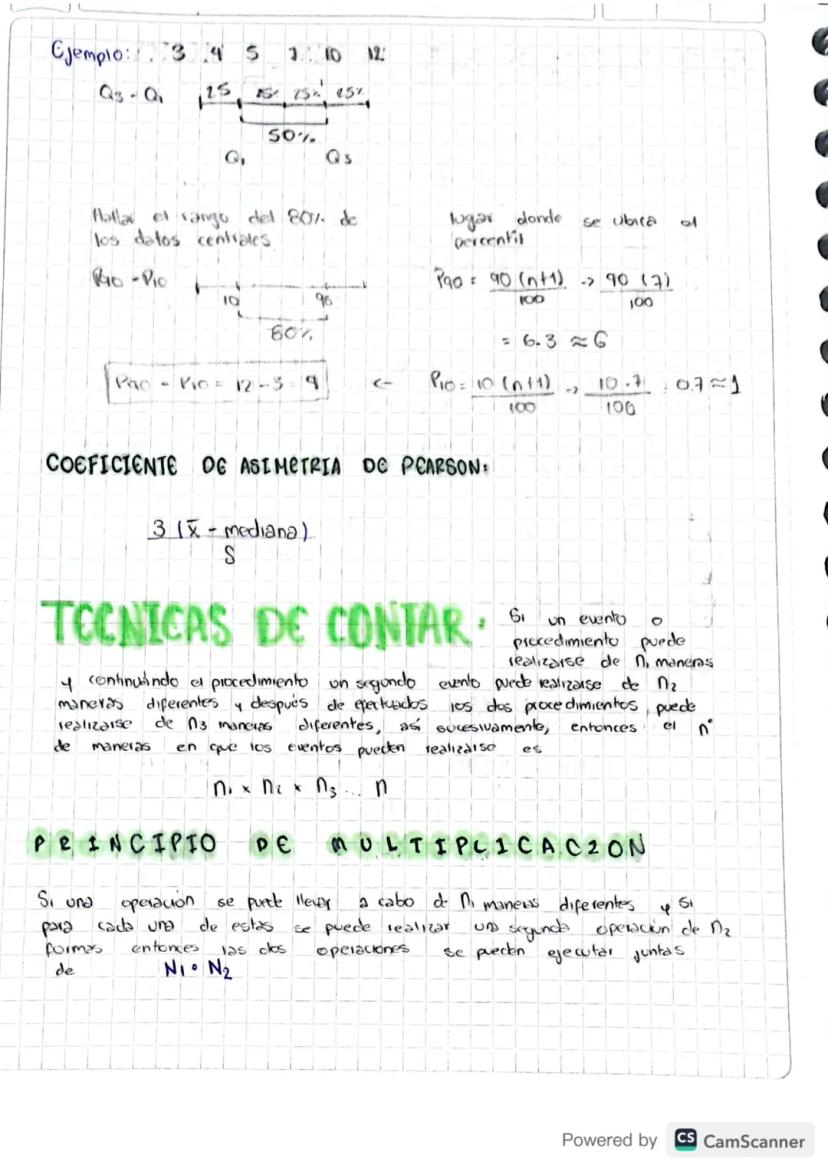 Ejemplo: 3 4 5 7 10 12
Q3 - Q1 25 25% 25% 25%
50%
Q1 Q3
Hallar el rango del 80% de
los datos centrales
P90 - P10
10 90
80%
P90 - P10 = 12 - 3 = 9 ←
lugar donde se ubica el
percentil
P90 = 90 (n+1) / 100 → 90 (7) / 100
= 6.3 ≈ 6
P10 = 10 (n+1) / 100 → 10 . 7 / 100 : 0.7 ≈ 1
COEFICIENTE DE ASIMETRIA DE PEARSON:
3 (x̄ - mediana)
S
TECNICAS DE CONTAR: Si un evento o
procedimiento puede
realizarse de n1 maneras
y continuando el procedimiento un segundo evento puede realizarse de n2
maneras diferentes y después de efectuados los dos procedimientos, puede
realizarse de n3 maneras diferentes, así sucesivamente, entonces el n°
de maneras en que los eventos pueden realizarse es
n1 x n2 x n3 ... n
PRINCIPIO DE MULTIPLICACION
Si una operación se puede llevar a cabo de n1 maneras diferentes y si
para cada una de estas se puede realizar una segunda operación de n2
formas entonces las dos operaciones se pueden ejecutar juntas
de N1 • N2
Powered by CS CamScanner